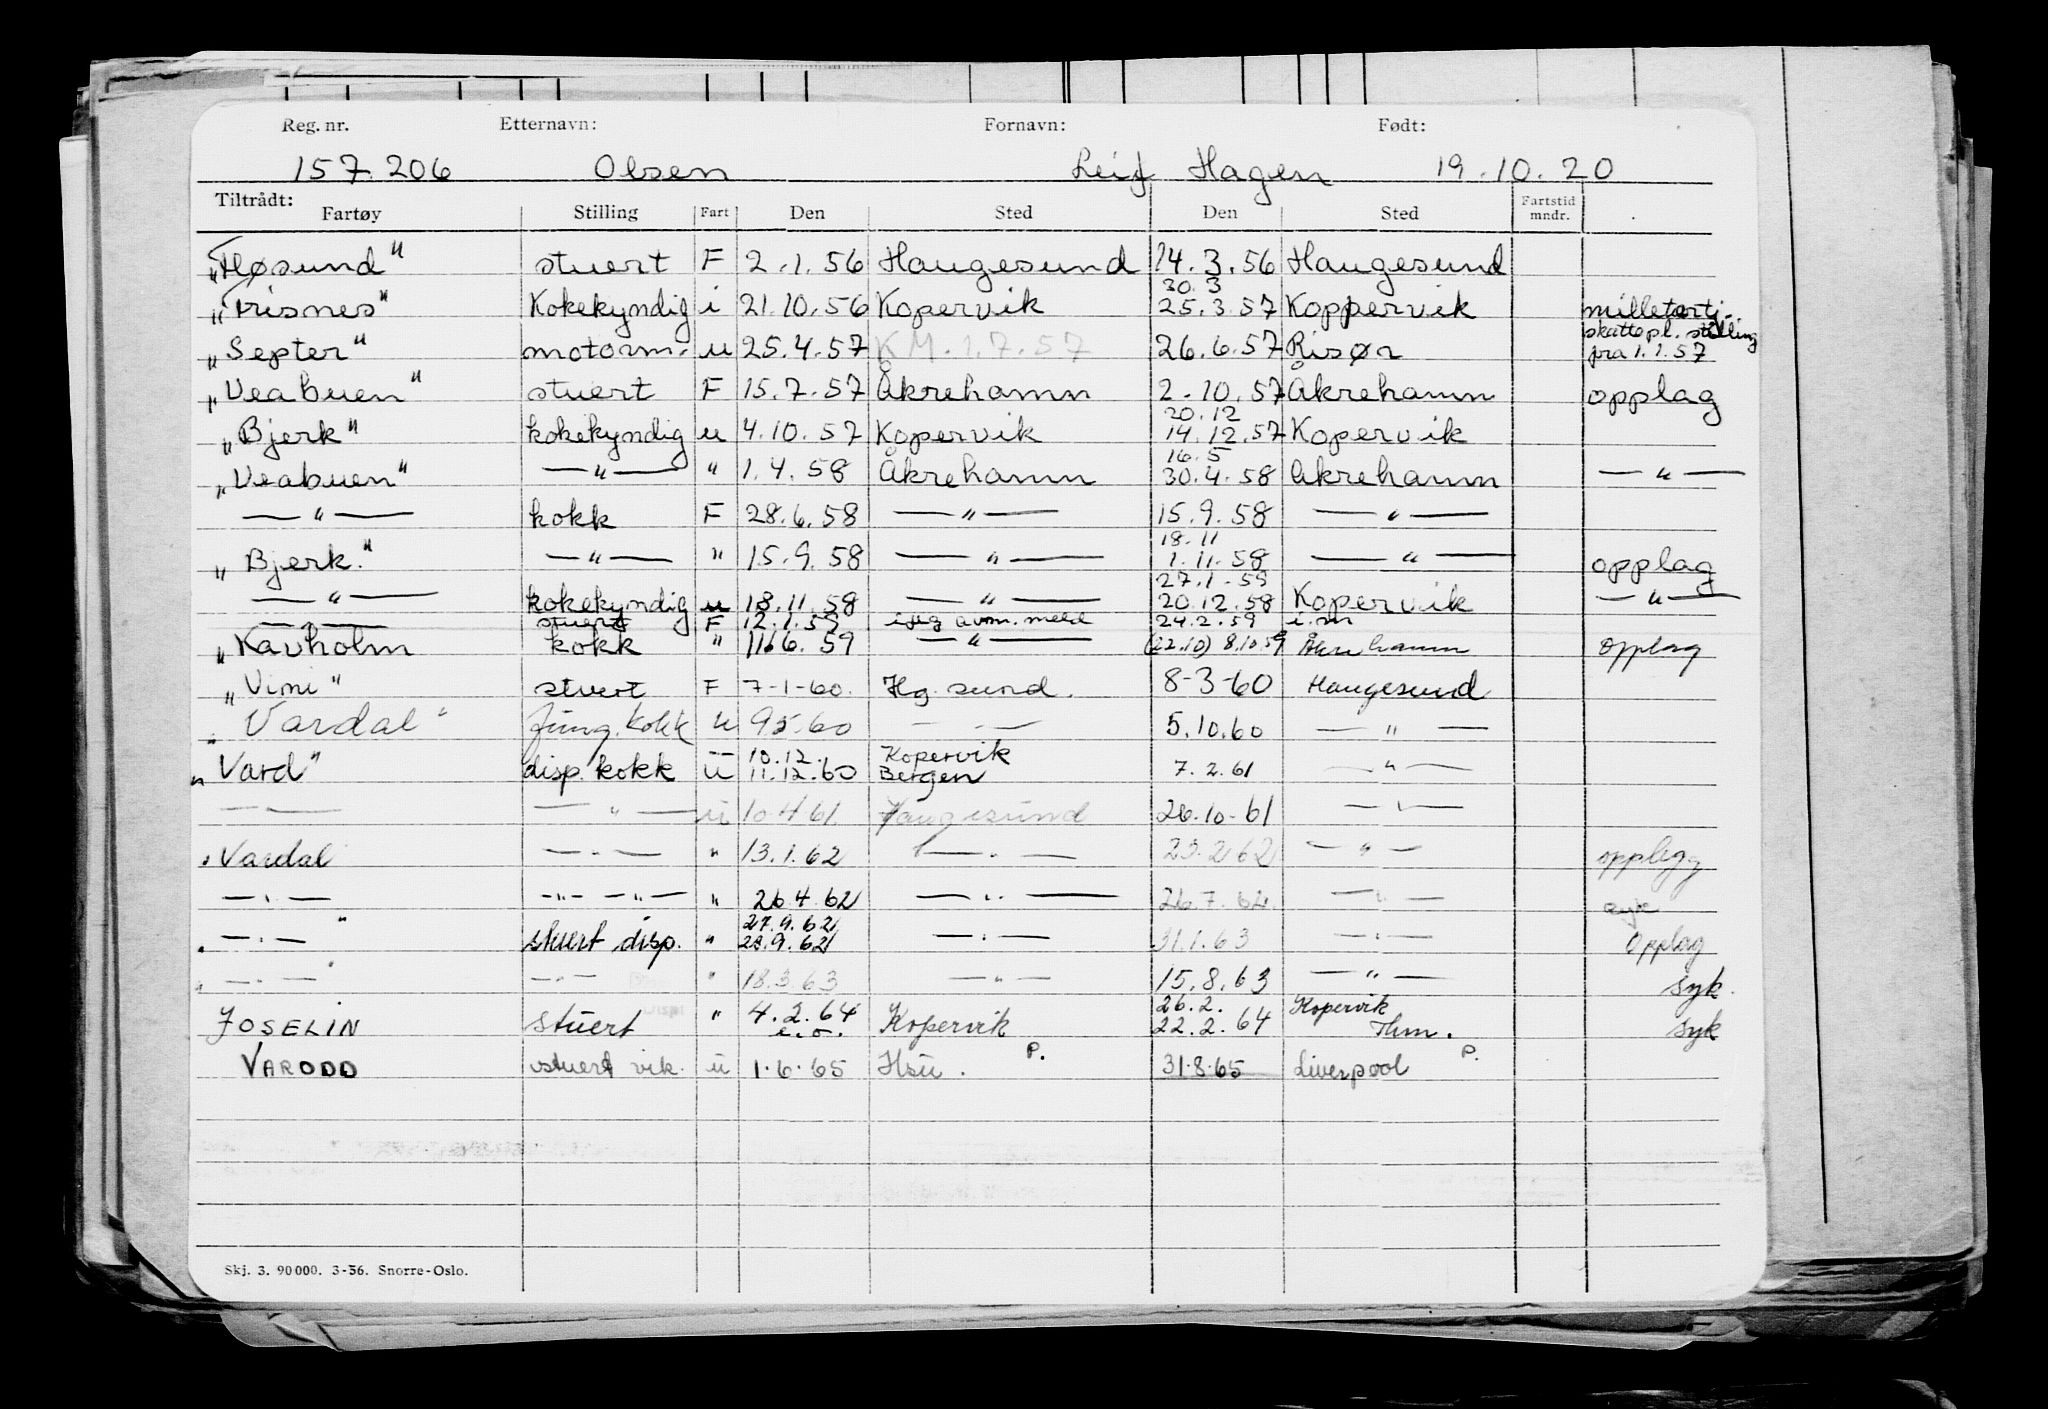 Reg. nr. Etternavn: Fornavn: Født:
157.206 Olsen Leif Hagen 19.10.20
Tiltrådt:
Fartøy Stilling Fart Den Sted Den Sted Fartstid mndr.
„Høsund" stuert F 2.1.56 Haugesund 14.3.56 Haugesund
30.3
„Trisnes" Kokekyndig i 21.10.56 Kopervik 25.3.57 Koppervik milletærtj.
skattepl. stilling
„Septer" motorm. u 25.4.57 KM.1.7.57 26.6.57 Risør fra 1.1.57
„Veabuen" stuert F 15.7.57 Åkrehamn 2.10.57 Åkrehamn opplag
20.12
„Bjerk" kokekyndig u 4.10.57 Kopervik 14.12.57 Kopervik
16.5
„Veabuen" —"— " 1.4.58 Åkrehamn 30.4.58 Åkrehamn —"—
—"— kokk F 28.6.58 —"— 15.9.58 —"—
18.11
„Bjerk." —"— " 15.9.58 —"— 1.11.58 —"— opplag
27.1.59
—"— kokekyndig u 18.11.58 —"— 20.12.58 Kopervik —"—
—"— stuert F 12.1.59 iflg avm. meld 24.2.59 i.m
„Kavholm kokk " 116.59 —"— (22.10) 8.10.59 Åkrehamn opplag
„Vimi" stuert F 7-1-60. Hg.sund. 8-3-60 Haugesund
„Vardal" fung. kokk u 9560 —"— 5.10.60 —"—
10.12. Kopervik
„Vard" disp. kokk u 11.12.60 Bergen 7.2.61 —"—
—"— —"— u 10 4 61. Haugesund 26.10-61 —"—
„Vardal —"— " 13.1.62 —"— 23.2 62 —"— opplegg
—"— —"— —"— " 26.4.62 —"— 26.7.62. —"— syk
27.9.62
—"— stuert disp. " 28.9.62 —"— 31.1.63 —"— Opplag
—"— —"— " 18.3.63 —"— 15.8.63 —"— syk.
26.2. Kopervik
JOSELIN stuert " 4.2.64 Kopervik 22.2.64 Thm. syk
e.o.
VARODD stuert vik. u 1.6.65 Hsu. P. 31.8.65 Liverpool P.
Skj. 3. 90 000. 3-56. Snorre-Oslo.